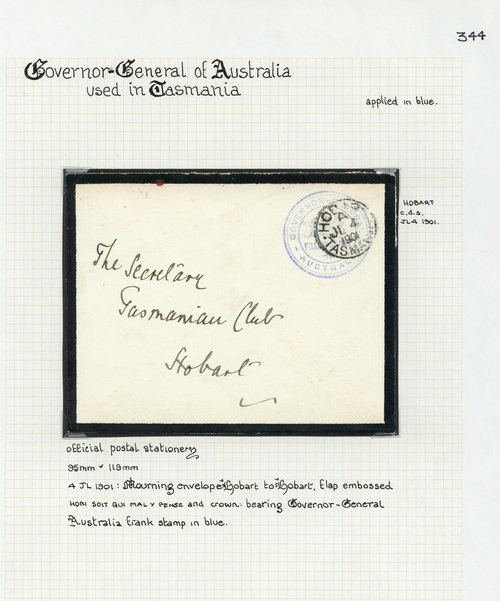 344
Governor-General of Australia
used in Tasmania
applied in blue.
HOBART
c.d.s.
JL 4 1901.
GOVERNOR
AUSTRALIA
HOBART
4
JL
1901
TASMANIA
The Secretary
Tasmanian Club
Hobart
official postal stationery
95mm × 119mm
4 JL 1901: Mourning envelope Hobart to Hobart, flap embossed
HONI SOIT QUI MAL Y PENSE and crown: bearing Governor-General
Australia frank stamp in blue.